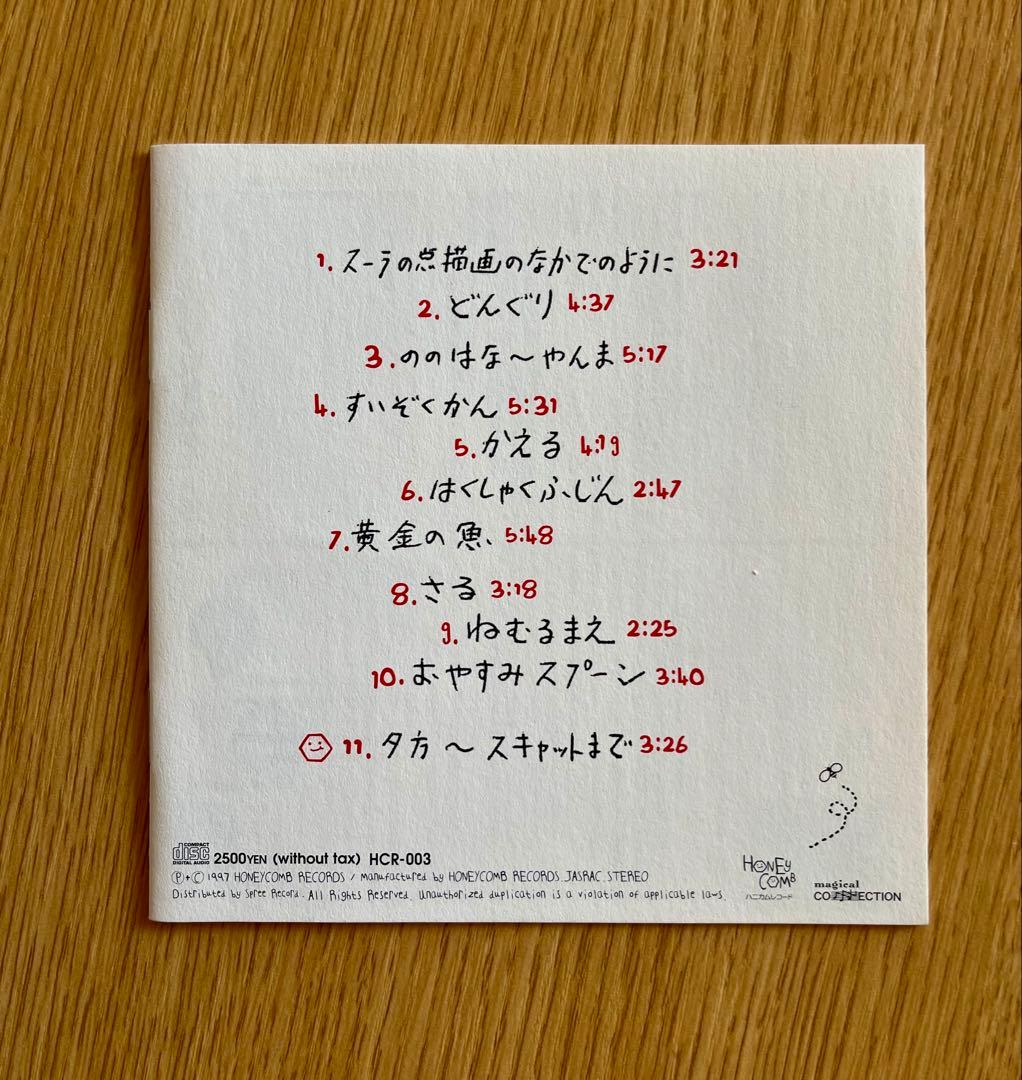 1. スーラの点描画のなかでのように 3:21
2. どんぐり 4:37
3. ののはな〜やんま 5:17
4. すいぞくかん 5:31
5. かえる 4:19
6. はくしゃくふじん 2:47
7. 黄金の魚、 5:48
8. さる 3:18
9. ねむるまえ 2:25
10. おやすみスプーン 3:40
11. 夕方〜スキャットまで 3:26
COMPACT disc DIGITAL AUDIO 2500YEN (without tax) HCR-003
Ⓟ+Ⓒ 1997 HONEYCOMB RECORDS / Manufactured by HONEYCOMB RECORDS. JASRAC. STEREO
Distributed by Spree Record. All Rights Reserved. Unauthorized duplication is a violation of applicable laws.
HONEY COMB
ハニカムレコード
magical